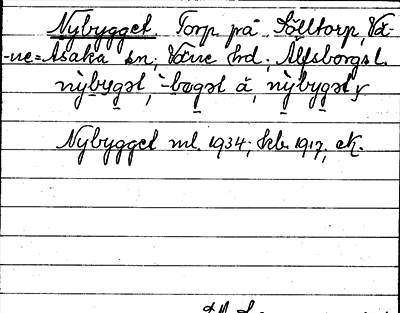 Nybygget. Torp på Sölltorp, Vä-
-ne=Åsaka sn, Väne hd, Älfsborgs l.
nỳbygət, `-bøgət å, nỳbygət y
Nybygget ml. 1934; kb. 1917, eK.